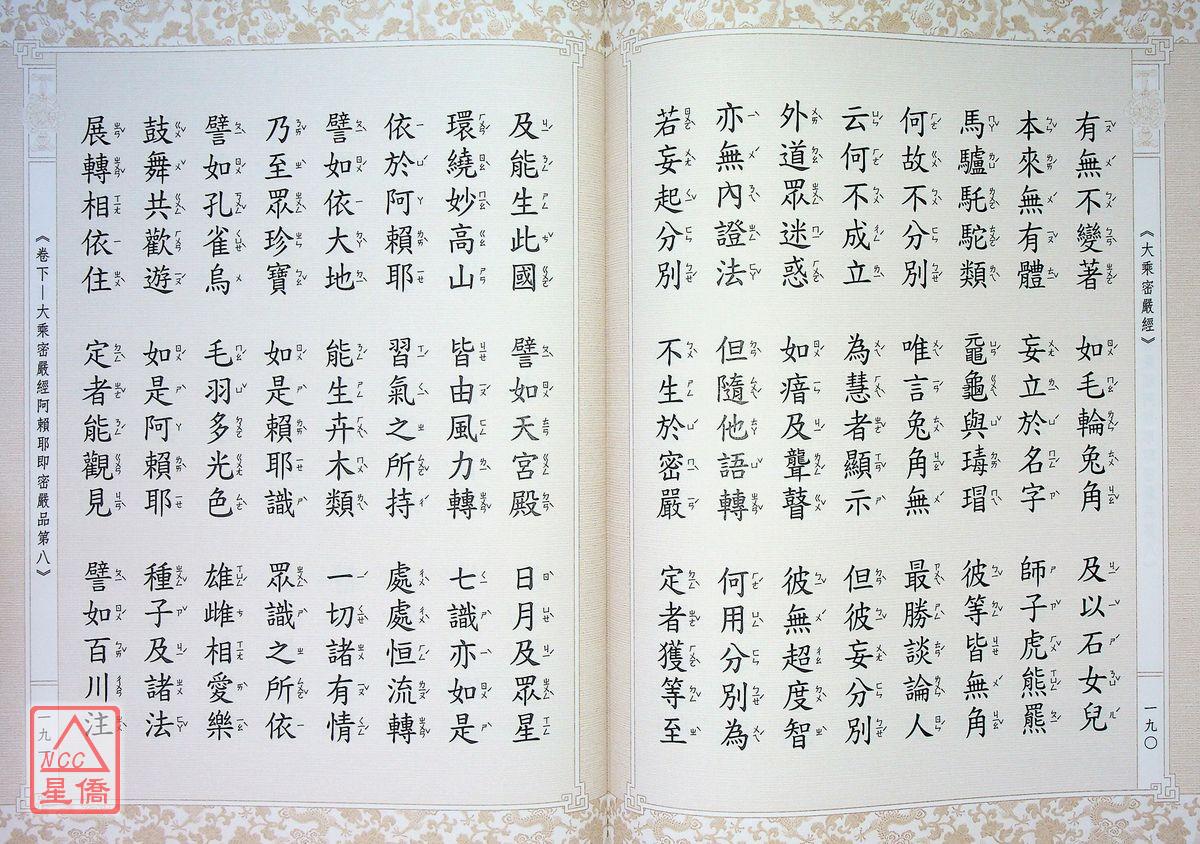 《大乘密嚴經》
一九〇
有無不變著 如毛輪兔角 及以石女兒
本來無有體 妄立於名字 師子虎熊羆
馬驢馲駝類 黿龜與瑇瑁 彼等皆無角
何故不分別 唯言兔角無 最勝談論人
云何不成立 為慧者顯示 但彼妄分別
外道眾迷惑 如瘖及聾瞽 彼無超度智
亦無內證法 但隨他語轉 何用分別為
若妄起分別 不生於密嚴 定者獲等至
及能生此國 譬如天宮殿 日月及眾星
環繞妙高山 皆由風力轉 七識亦如是
依於阿賴耶 習氣之所持 處處恒流轉
譬如依大地 能生卉木類 一切諸有情
乃至眾珍寶 如是賴耶識 眾識之所依
譬如孔雀鳥 毛羽多光色 雄雌相愛樂
鼓舞共歡遊 如是阿賴耶 種子及諸法
展轉相依住 定者能觀見 譬如百川注
《卷下—大乘密嚴經阿賴耶即密嚴品第八》
一九
NCC
星僑